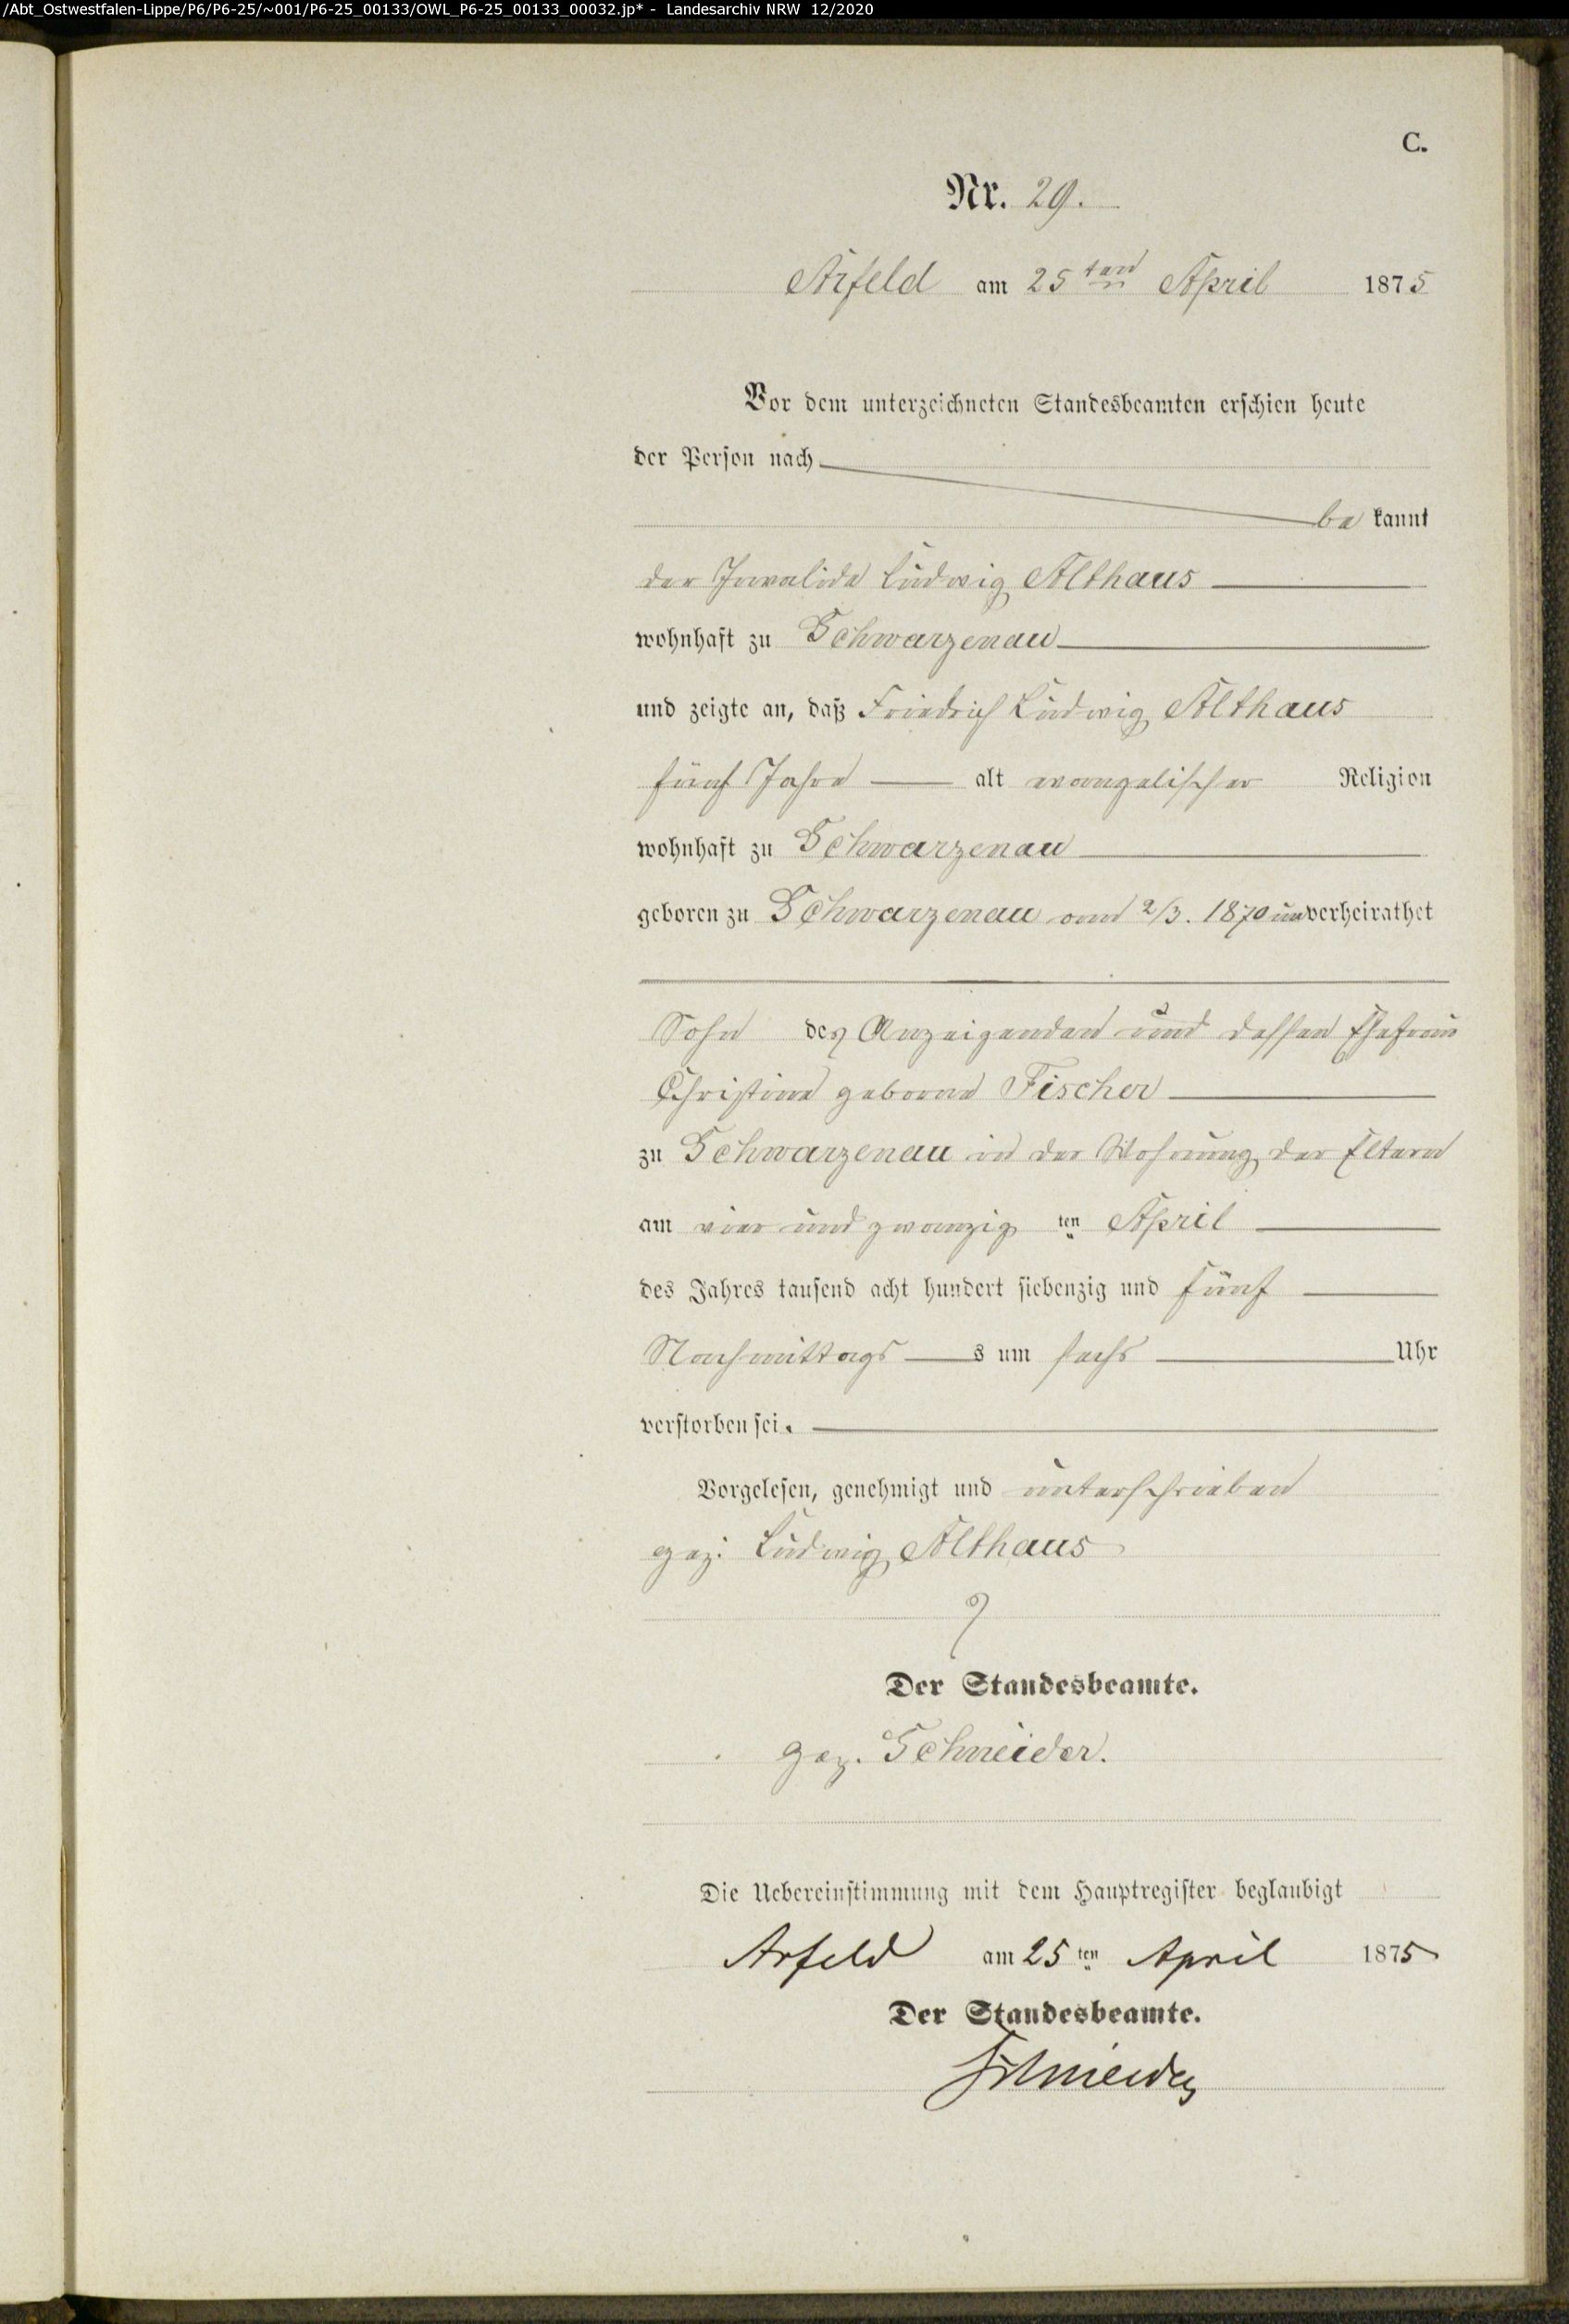 /Abt_Ostwestfalen-Lippe/P6/P6-25/~001/P6-25_00133/OWL_P6-25_00133_00032.jp* - Landesarchiv NRW 12/2020
C.
Nr. 29.
Arfeld am 25ten April 1875
Vor dem unterzeichneten Standesbeamten erschien heute
der Person nach
be kannt
der Invalide Ludwig Althaus
wohnhaft zu Schwarzenau
und zeigte an, daß Friedrich Ludwig Althaus
fünf Jahre alt evangelischer Religion
wohnhaft zu Schwarzenau
geboren zu Schwarzenau am 2/3. 1870 unverheirathet
Sohn des Anzeigenden und dessen Ehefrau
Christine geborne Fischer
zu Schwarzenau in der Wohnung der Eltern
am vier und zwanzig ten April
des Jahres tausend acht hundert siebenzig und fünf
Nachmittags s um sechs Uhr
verstorben sei.
Vorgelesen, genehmigt und unterschrieben
gez: Ludwig Althaus
Der Standesbeamte.
gez. Schneider.
Die Uebereinstimmung mit dem Hauptregister beglaubigt
Arfeld am 25 ten April 1875
Der Standesbeamte.
Schneider